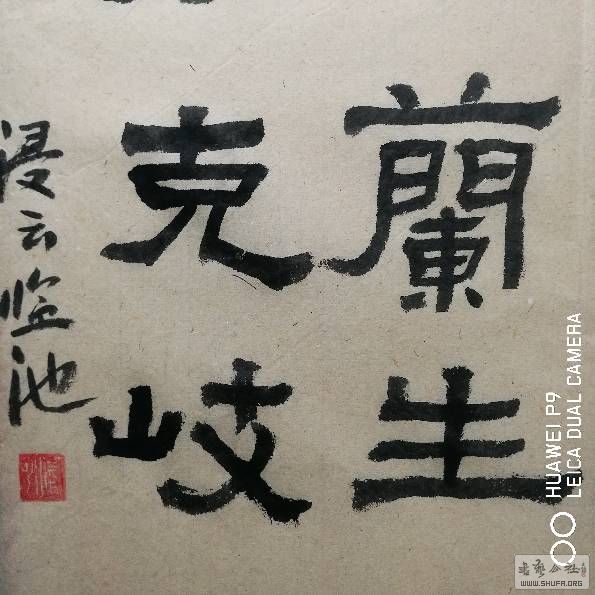 蘭生
克岐
浸云临池
HUAWEI P9
LEICA DUAL CAMERA
WWW.SHUFA.ORG